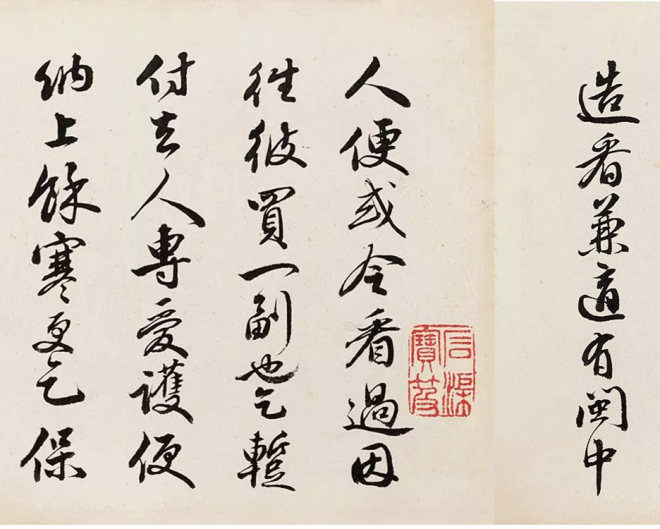 造看兼適有閩中
人便或令看過因
往彼買一副也乞蹔
付去人專愛護便
納上餘寒更乞保
石渠寶笈